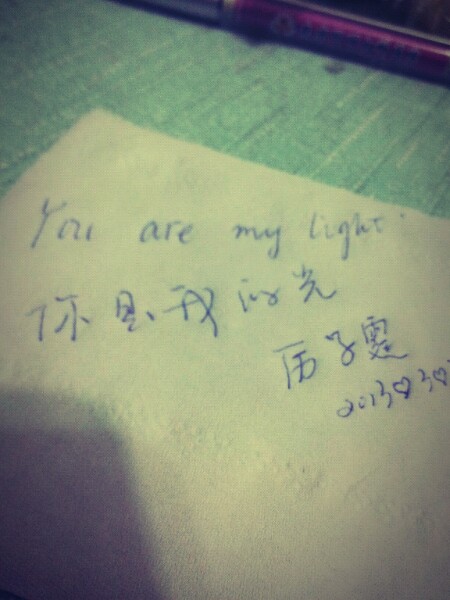 You are my light.
你是我的光
历子霆
2013♡3♡